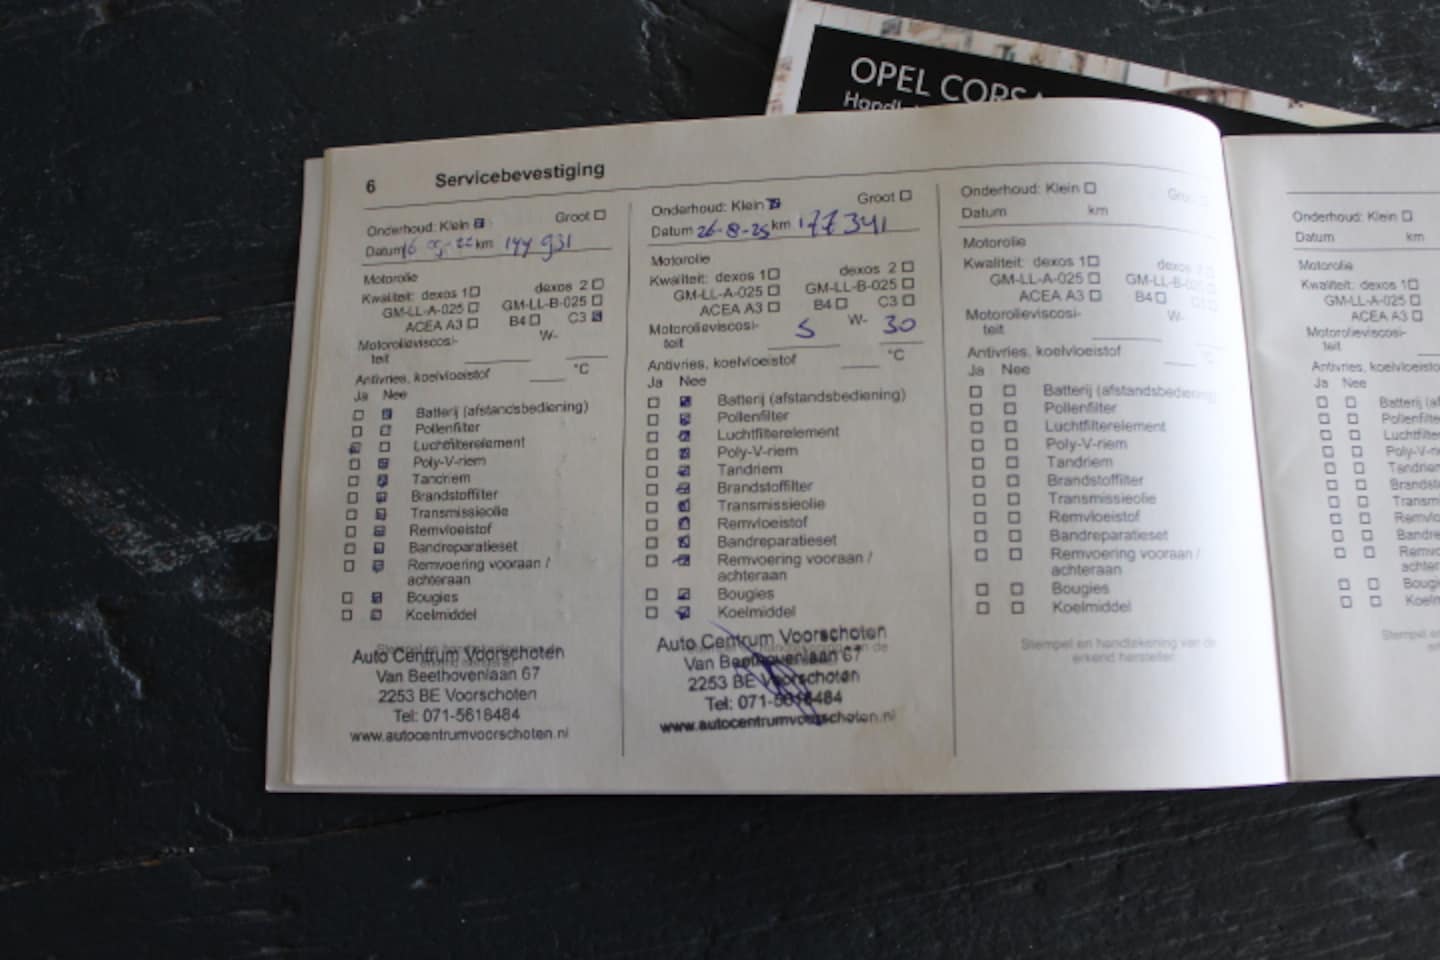 OPEL CORSA
6 Servicebevestiging
Onderhoud: Klein Groot
Datum 16 05-22 km 144 931
Motorolie
Kwaliteit: dexos 1 dexos 2
GM-LL-A-025 GM-LL-B-025
ACEA A3 B4 C3
Motorolieviscosi-
teit W-
Antivries, koelvloeistof °C
Ja Nee
Batterij (afstandsbediening)
Pollenfilter
Luchtfilterelement
Poly-V-riem
Tandriem
Brandstoffilter
Transmissieolie
Remvloeistof
Bandreparatieset
Remvoering vooraan /
achteraan
Bougies
Koelmiddel
Auto Centrum Voorschoten
Van Beethovenlaan 67
2253 BE Voorschoten
Tel: 071-5618484
www.autocentrumvoorschoten.nl
Onderhoud: Klein Groot
Datum 26-8-25 km 177 341
Motorolie
Kwaliteit: dexos 1 dexos 2
GM-LL-A-025 GM-LL-B-025
ACEA A3 B4 C3
Motorolieviscosi-
teit 5 W- 30
Antivries, koelvloeistof °C
Ja Nee
Batterij (afstandsbediening)
Pollenfilter
Luchtfilterelement
Poly-V-riem
Tandriem
Brandstoffilter
Transmissieolie
Remvloeistof
Bandreparatieset
Remvoering vooraan /
achteraan
Bougies
Koelmiddel
Auto Centrum Voorschoten
Van Beethovenlaan 67
2253 BE Voorschoten
Tel: 071-5618484
www.autocentrumvoorschoten.nl
Onderhoud: Klein Groot
Datum km
Motorolie
Kwaliteit: dexos 1 dexos 2
GM-LL-A-025 GM-LL-B-025
ACEA A3 B4 C3
Motorolieviscosi-
teit W-
Antivries, koelvloeistof °C
Ja Nee
Batterij (afstandsbediening)
Pollenfilter
Luchtfilterelement
Poly-V-riem
Tandriem
Brandstoffilter
Transmissieolie
Remvloeistof
Bandreparatieset
Remvoering vooraan /
achteraan
Bougies
Koelmiddel
Stempel en handtekening van de
erkend hersteller
Onderhoud: Klein
Datum km
Motorolie
Kwaliteit: dexos 1
GM-LL-A-025
ACEA A3
Motorolieviscosi-
teit
Antivries,
Ja Nee